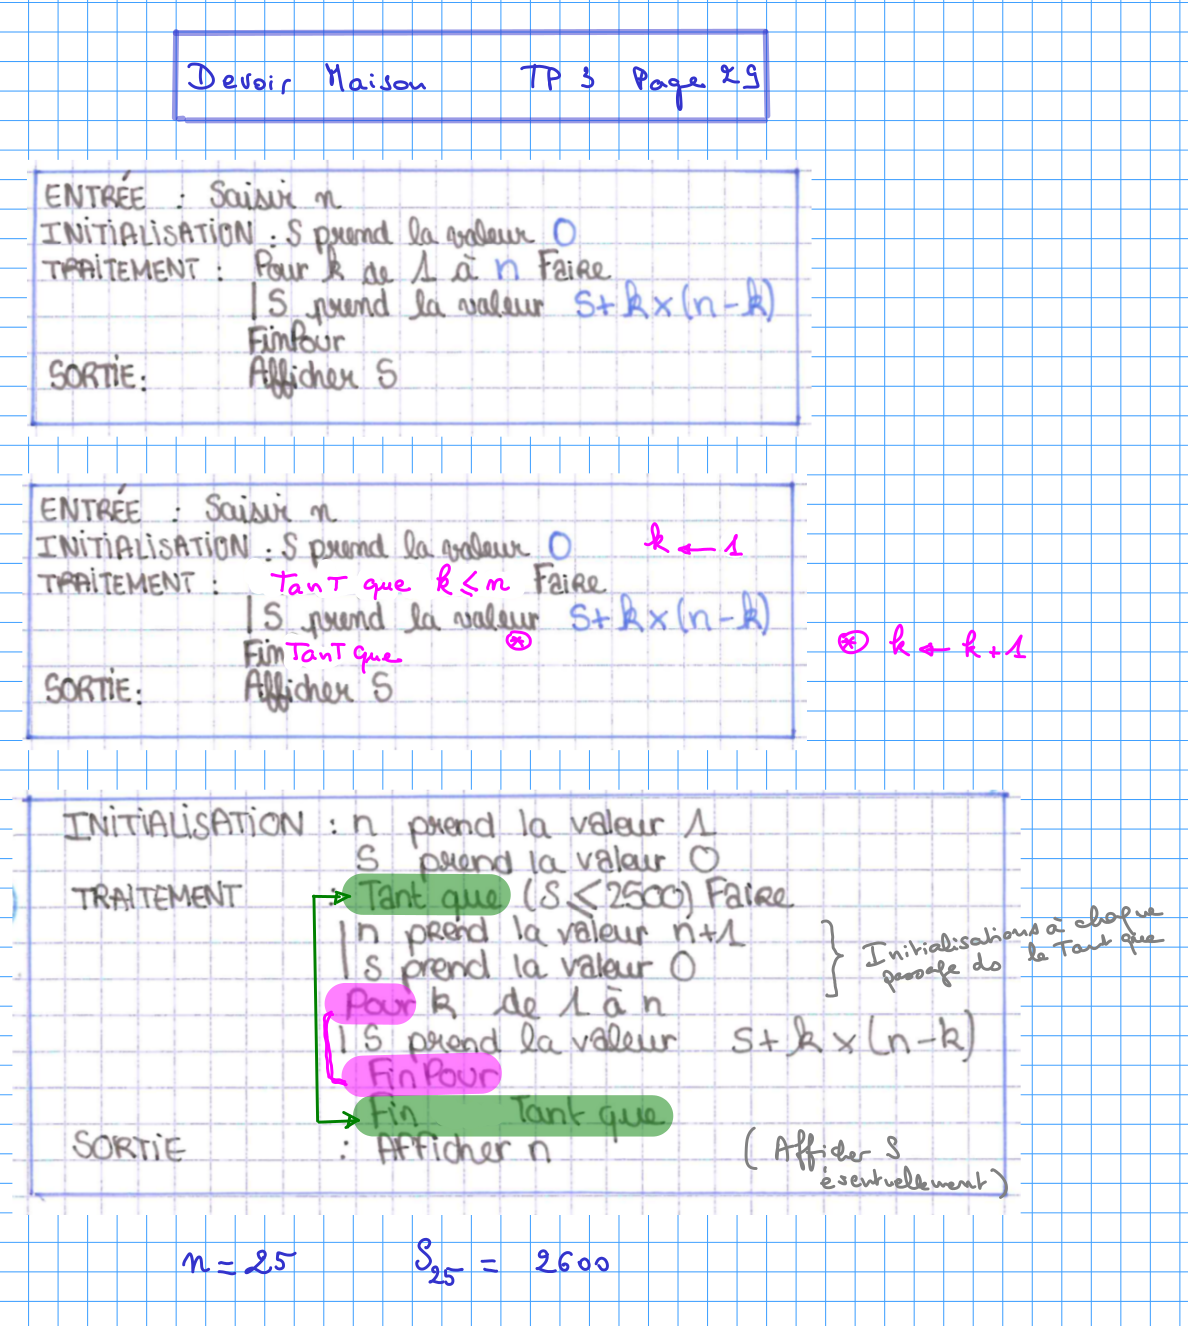 Devoir Maison TP 3 Page 29
ENTRÉE : Saisir n
INITIALISATION : S prend la valeur 0
TRAITEMENT : Pour k de 1 à n Faire
| S prend la valeur S+k×(n-k)
FinPour
SORTIE: Afficher S
ENTRÉE : Saisir n
INITIALISATION : S prend la valeur 0 k ← 1
TRAITEMENT : Tant que k ≤ n Faire
| S prend la valeur S+k×(n-k)
⊛ ⊛ k ← k+1
Fin Tant que
SORTIE: Afficher S
INITIALISATION : n prend la valeur 1
S prend la valeur 0
TRAITEMENT : Tant que (S ≤ 2500) Faire
| n prend la valeur n+1
| S prend la valeur 0
} Initialisations à chaque
passage ds le Tant que
Pour k de 1 à n
| S prend la valeur S+k×(n-k)
FinPour
Fin Tant que
SORTIE : Afficher n (Afficher S
ésentuellement)
n = 25 S25 = 2600